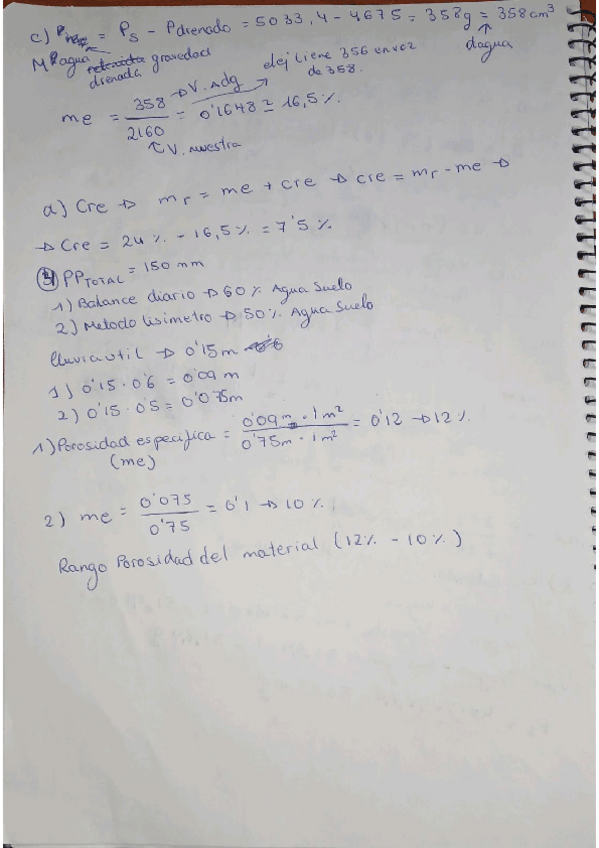 c) P = Ps - Pdrenado = 5033,4 - 4675 = 358g = 358cm³
M agua retenida gravedad
drenada
dagua
el ej tiene 356 en vez
de 358.
me = 358 → V. Adg / 2160 = 0'1648 ≃ 16,5%.
V. muestra
d) Cre → mr = me + cre → cre = mr - me →
→ Cre = 24% - 16,5% = 7'5%
3) PPTOTAL = 150 mm
1) Balance diario → 60% Agua Suelo
2) Metodo lisimetro → 50% Agua Suelo
lluvia util → 0'15m
1) 0'15 · 0'6 = 0'09 m
2) 0'15 · 0'5 = 0'075m
1) Porosidad especifica = 0'09m · 1m² / 0'75m · 1m² = 0'12 → 12%.
(me)
2) me = 0'075 / 0'75 = 0'1 → 10%
Rango Porosidad del material (12% - 10%)